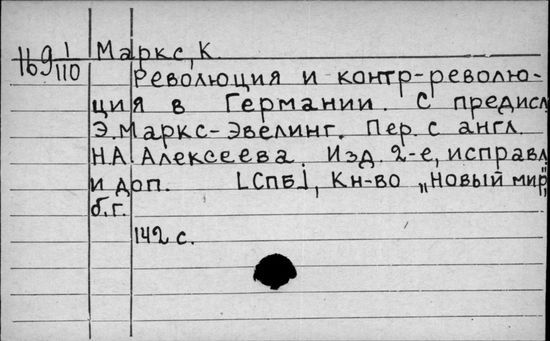 169 1/110 Маркс, К.
Революция и контр-револю-
ция в Германии. С предисл
Э.Маркс-Эвелинг. Пер. с англ.
Н.А.Алексеева. Изд. 2-е, исправл
и доп. [СПБ], Кн-во „Новый мир",
б.г.
142 с.